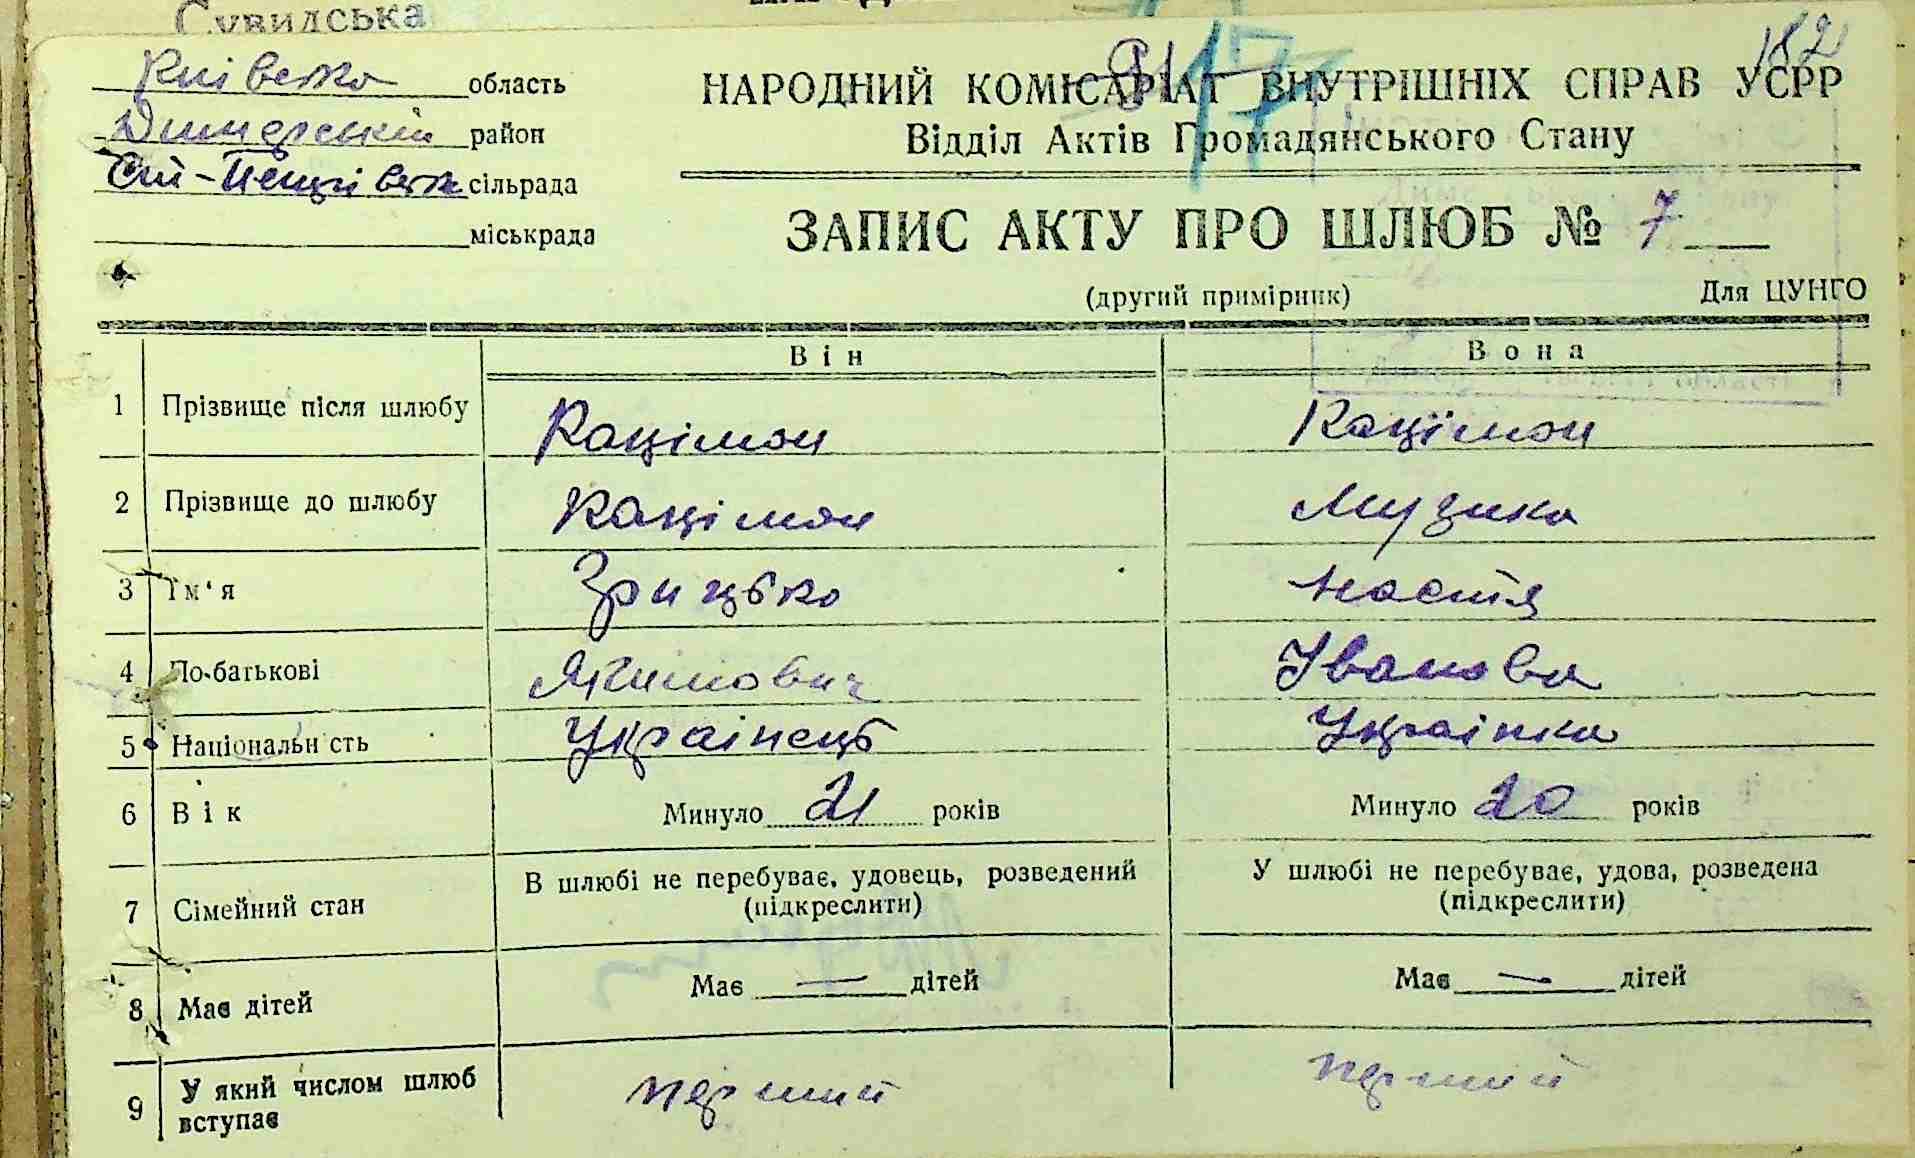 Сувидська
Київська область
Димерський район
Сви-Петрівська сільрада
міськрада
182
17
НАРОДНИЙ КОМІСАРІАТ ВНУТРІШНІХ СПРАВ УСРР
Відділ Актів Громадянського Стану
ЗАПИС АКТУ ПРО ШЛЮБ № 7
(другий примірник) Для ЦУНГО
Він Вона
1 Прізвище після шлюбу Кацімон Кацімон
2 Прізвище до шлюбу Кацімон Музика
3 Ім‘я Грицько Настя
4 По-батькові Якимович Іванова
5 Національн сть Українець Українка
6 Вік Минуло 21 років Минуло 20 років
7 Сімейний стан В шлюбі не перебуває, удовець, розведений (підкреслити) У шлюбі не перебуває, удова, розведена (підкреслити)
8 Має дітей Має — дітей Має — дітей
9 У який числом шлюб вступає перший перший